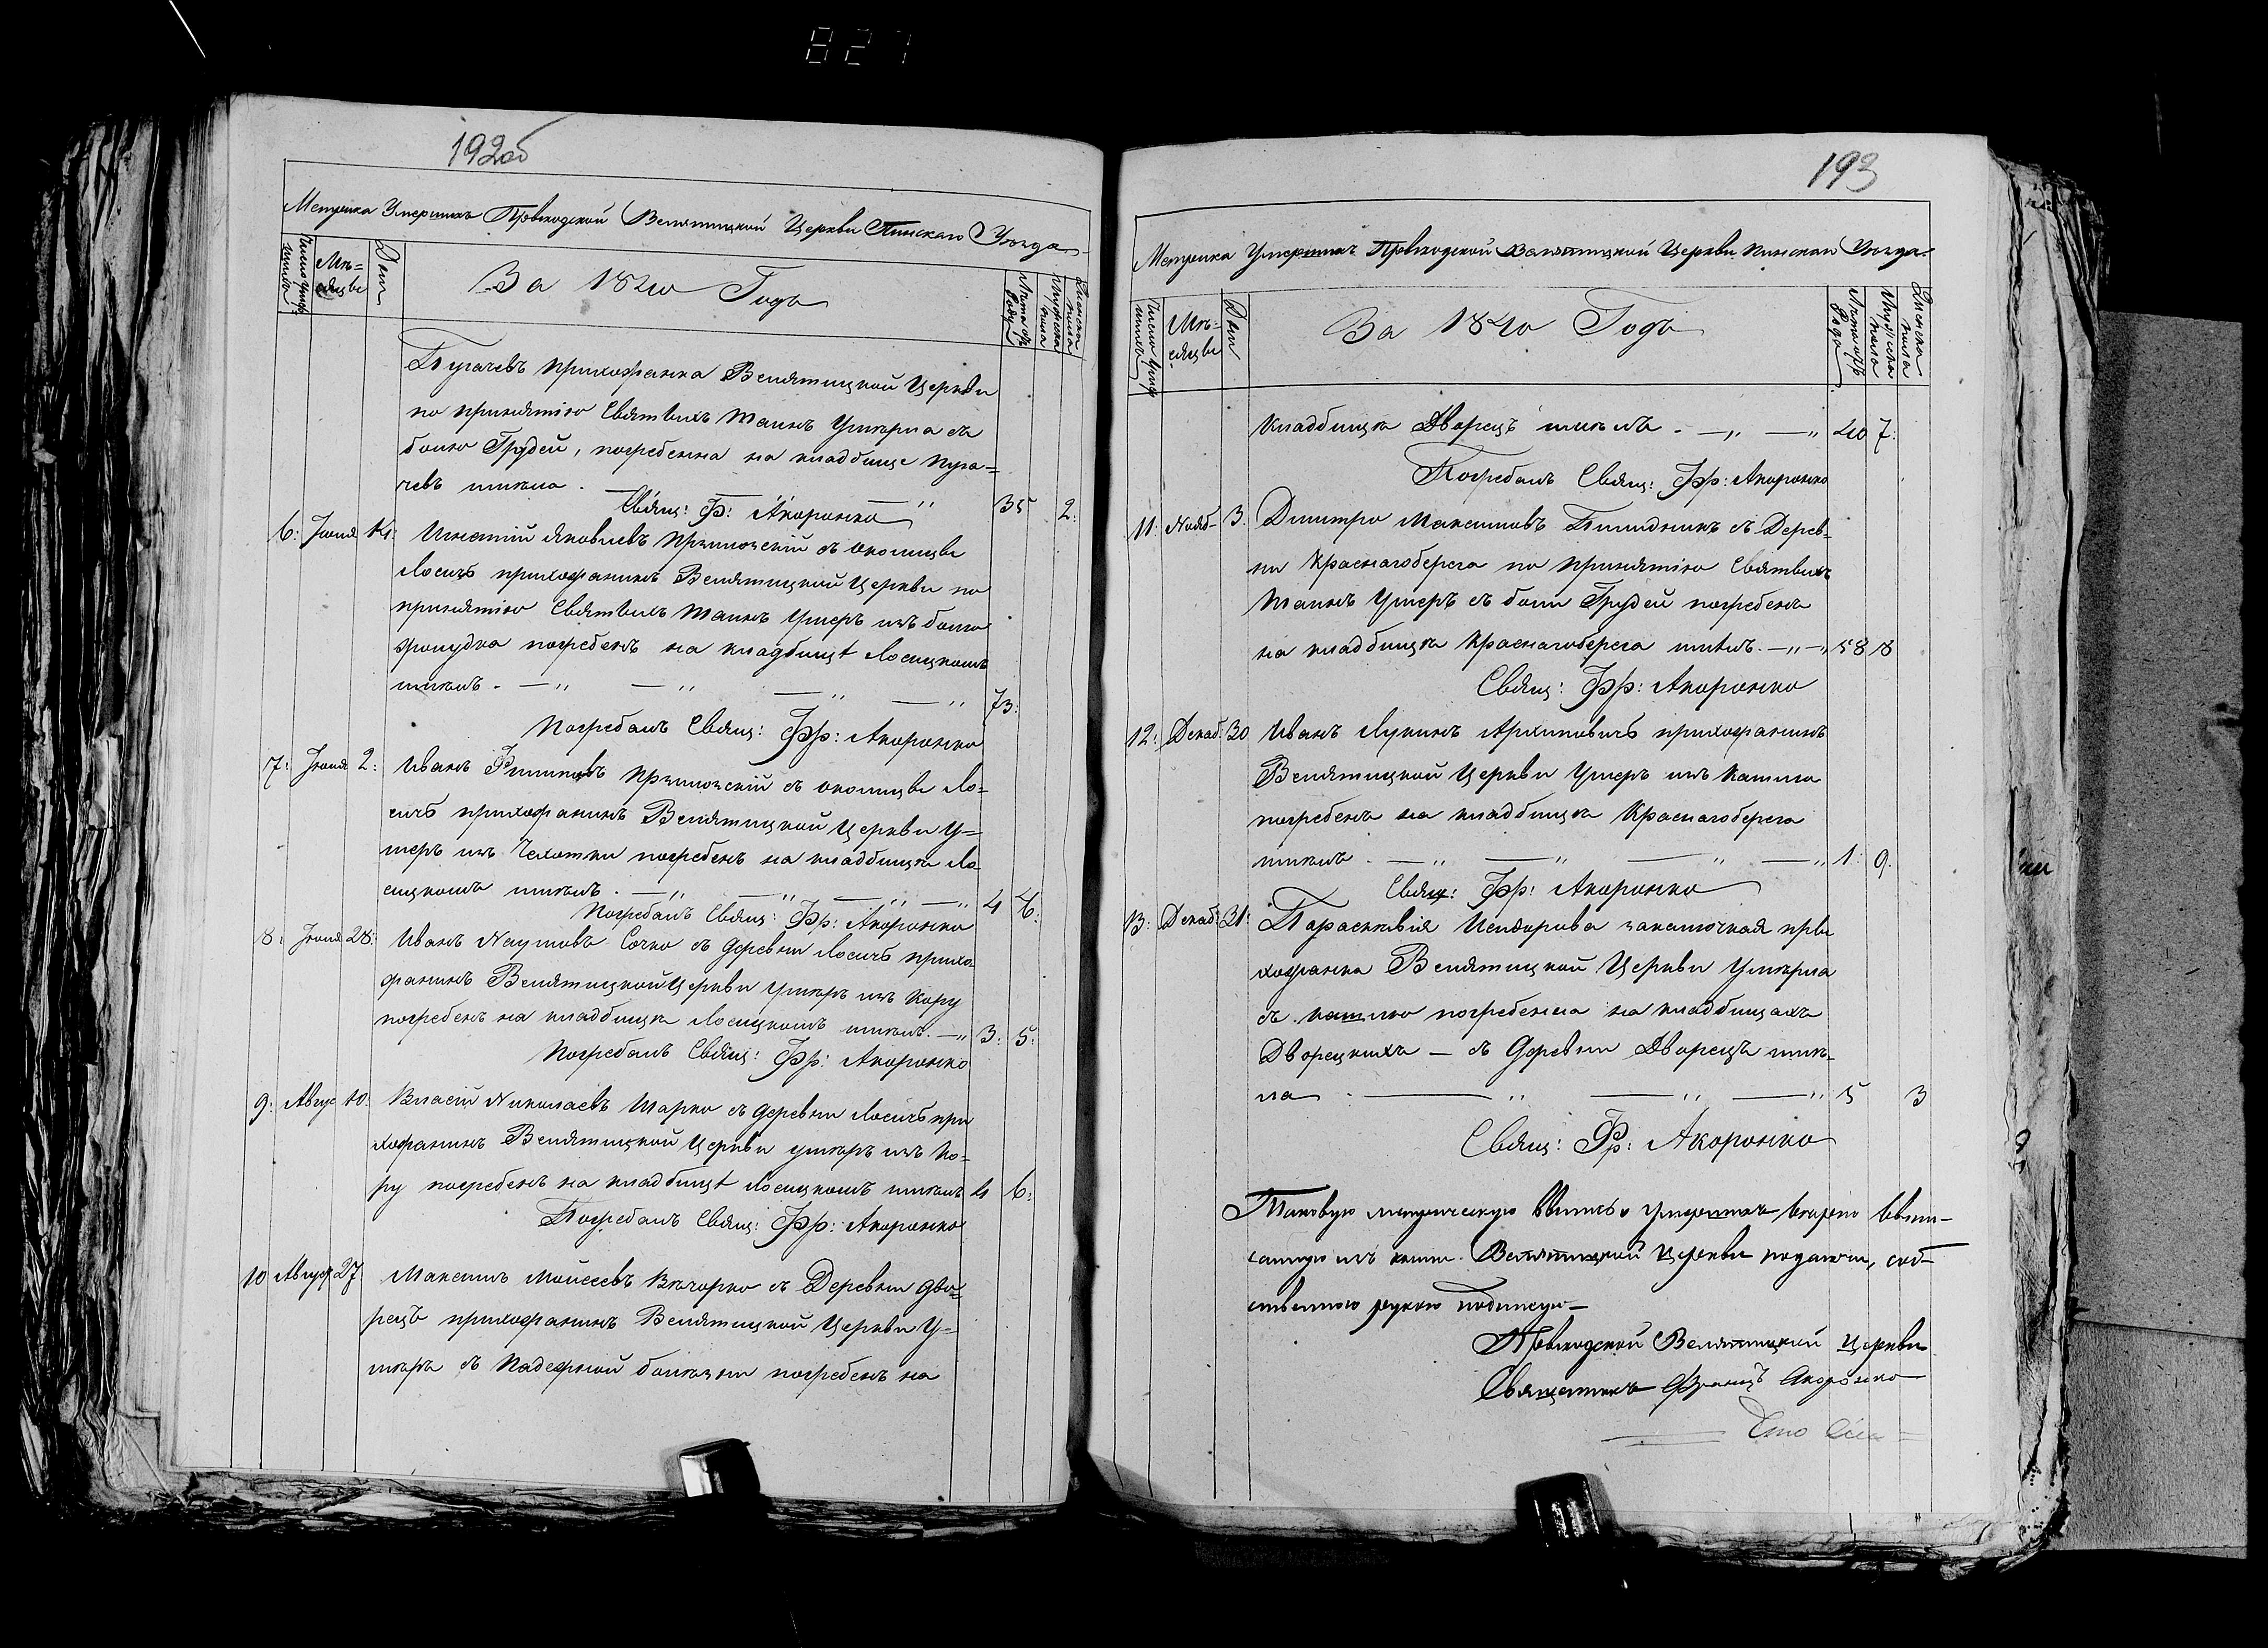 827
192об
Метрика Умершихъ Прыходской Велятицкой Церкви Пинскаго Уѣзда
Число умер
шихъ
Мѣ=
сяцы
Дни
За 1840 Годъ
Лѣта отъ
Роду
Мужеска
пола
Женска
пола
Пугачевъ прихожанка Велятицкой Церкви
по принятію Святыхъ Таинъ Умѣрла съ
болю Грудей, погребенна на кладбище Пуга=
чевъ тихъ
Свящ: Ф: Акоронко 35 2:
6: Іюня 14: Игнатій Яковлевъ с околицы
Лосичъ прихожанинъ Велятицкой Церкви по
принятію Святыхъ Таинъ Умеръ изъ болю
жолудка погребенъ на кладбищѣ Лосицкомъ
73:
Погребалъ Свящ: Фр: Акоронко
7: Іюня 2: Иванъ Филиповъ с околицы Ло=
сичъ прихожанинъ Велятицкой Церкви У=
меръ изъ Чехотки погребенъ на кладбищѣ Ло
сицкомъ 4 4:
Погребалъ Свящ: Фр: Акоронко
8: Іюня 28: Иванъ Наумовъ Сочко съ деревни Лосичъ прихо
жанинъ Велятицкой Церкви умѣръ изъ Кору
погребенъ на кладбищѣ Лосицкомъ 3: 5:
Погребалъ Свящ: Фр: Акоронко
9: Авгус 10: Власій Николаевъ Шарко съ деревни Лосичъ при
хожанинъ Велятицкой Церкви умѣръ изъ Ко=
ру погребенъ на кладбищѣ Лосицкомъ 6:
Погребалъ Свящ: Фр: Акоронко
10 Август 27 Максимъ Мойсеевъ Вѣчорко съ Деревни Дво=
рецъ прихожанинъ Велятицкой Церкви У=
мѣръ съ Падежной болѣзни погребенъ на
193
Метрика Умершихъ Прыходской Велятицкой Церкви Пинскаго Уѣзда
Число умер
шихъ
Мѣ=
сяцы
Дни
За 1840 Годъ
Лѣта отъ
Роду
Мужеска
пола
Женска
пола
кладбищѣ Дворецъ 40 7:
Погребалъ Свящ: Фр: Акоронко
11: Нояб 3. Дмитро Максимовъ съ Дерев=
ни Краснагоберега по принятію Святыхъ
Таинъ Умеръ съ боли Грудей погребенъ
на кладбищѣ Краснагоберега 58 8
Свящ: Фр: Акоронко
12: Декаб: 30 Иванъ Лукинъ Архиповичъ прихожанинъ
Велятицкой Церкви Умеръ изъ Кашлю
погребенъ на кладбищѣ Краснагоберега
1: 9.
Свящ: Фр: Акоронко
13: Декаб: 31: Параскѣвія Исидорова при
хожанка Велятицкой Церкви Умѣрла
съ кашлю погребенна на кладбищахъ
Дворецкихъ — съ Деревни Дворецъ
5 3
Свящ: Фр: Акоронко
Таковую метрическую о Умершихъ
изъ книги Велятицкой Церкви соб=
ственною рукою подписую
Прыходской Велятицкой Церкви
Священникъ Францъ Акоронко